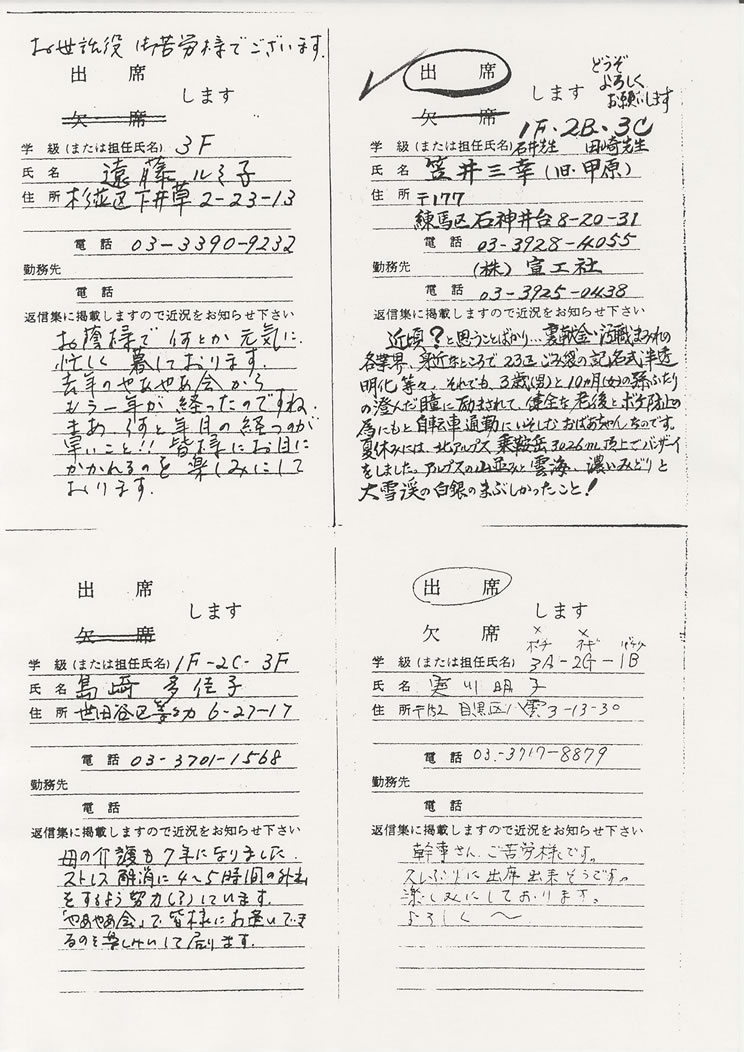 お世話役 御苦労様でございます.
出 席
します
欠 席
学 級 (または担任氏名) 3F
氏 名 遠藤 ルミ子
住 所 杉並区下井草 2-23-13
電 話 03-3390-9232
勤務先
電 話
返信集に掲載しますので近況をお知らせ下さい
お蔭様で 何とか元気に.
忙しく 暮しております.
去年のやあやあ会から
もう一年が 経ったのですね.
まあ、何と年月の経つのが
早いこと!! 皆様にお目に
かかれるのを 楽しみにして
おります.
出 席
します
どうぞ
よろしく
お願いします
欠 席
1F・2B・3C
学 級 (または担任氏名) 石井先生 田崎先生
氏 名 笠井三幸 (旧・甲原)
住 所 〒177
練馬区石神井台 8-20-31
電 話 03-3928-4055
勤務先 (株) 宣工社
電 話 03-3925-0438
返信集に掲載しますので近況をお知らせ下さい
近頃?と思うことばかり… 裏献金・汚職まみれの
各業界、身近なところで23区ごみ袋の記名式半透
明化等々。それでも、3歳(男)と10ヵ月(女)の孫ふたり
の澄んだ瞳に励まされて、健全な老後とボケ防止の
為にもと自転車通勤にいそしむおばあちゃんちのです。
夏休みには、北アルプス 乗鞍岳3026m頂上でバンザーイ
をしました。アルプスの山並みと雲海、濃いみどりと
大雪渓の白銀のまぶしかったこと!
出 席
します
欠 席
学 級 (または担任氏名) 1F-2C-3F
氏 名 島崎 多佳子
住 所 世田谷区等々力 6-27-17
電 話 03-3701-1568
勤務先
電 話
返信集に掲載しますので近況をお知らせ下さい
母の介護も7年になりました.
ストレス解消に4~5時間の外出
をするよう努力(?)しています.
「やあやあ会」で皆様にお逢いでき
るのを楽しみにして居ります.
出 席
します
欠 席
× ×
学 級 (または担任氏名) 3A-2G-1B
氏 名 明子
住 所 〒152 目黒区八雲3-13-30
電 話 03-3717-8879
勤務先
電 話
返信集に掲載しますので近況をお知らせ下さい
幹事さん、ご苦労様です。
久しぶりに出席出来そうです。
楽しみにしております。
よろしく〜